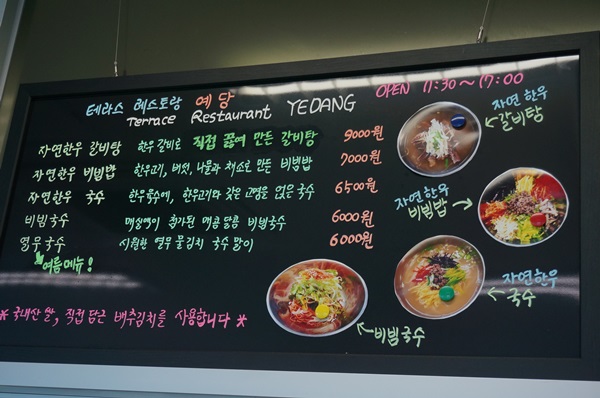 테라스 레스토랑 예당
Terrace Restaurant YEDANG
OPEN 11:30~17:00
자연한우 갈비탕 한우 갈비로 직접 끓여 만든 갈비탕 9000원
자연한우 비빔밥 한우고기, 버섯, 나물과 채소로 만든 비빔밥 7000원
자연한우 국수 한우육수에, 한우고기와 갖은 고명을 얹은 국수 6500원
비빔국수 매실액이 첨가된 매콤 달콤 비빔국수 6000원
열무국수 시원한 열무 물김치 국수 말이 6000원
여름메뉴!
* 국내산 쌀, 직접 담근 배추김치를 사용합니다 *
자연한우
갈비탕
자연한우
비빔밥
자연한우
국수
비빔국수